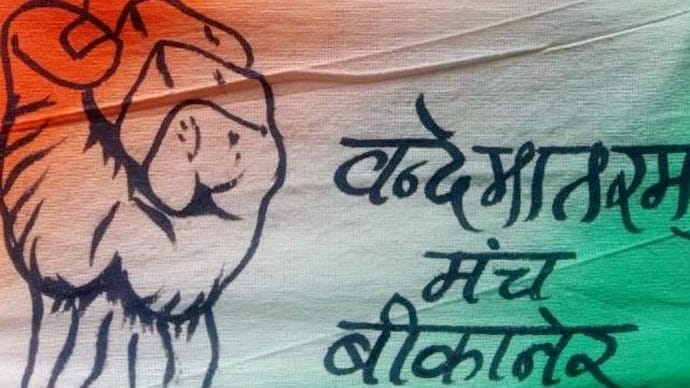 वन्देमातरम्
मंच
बीकानेर